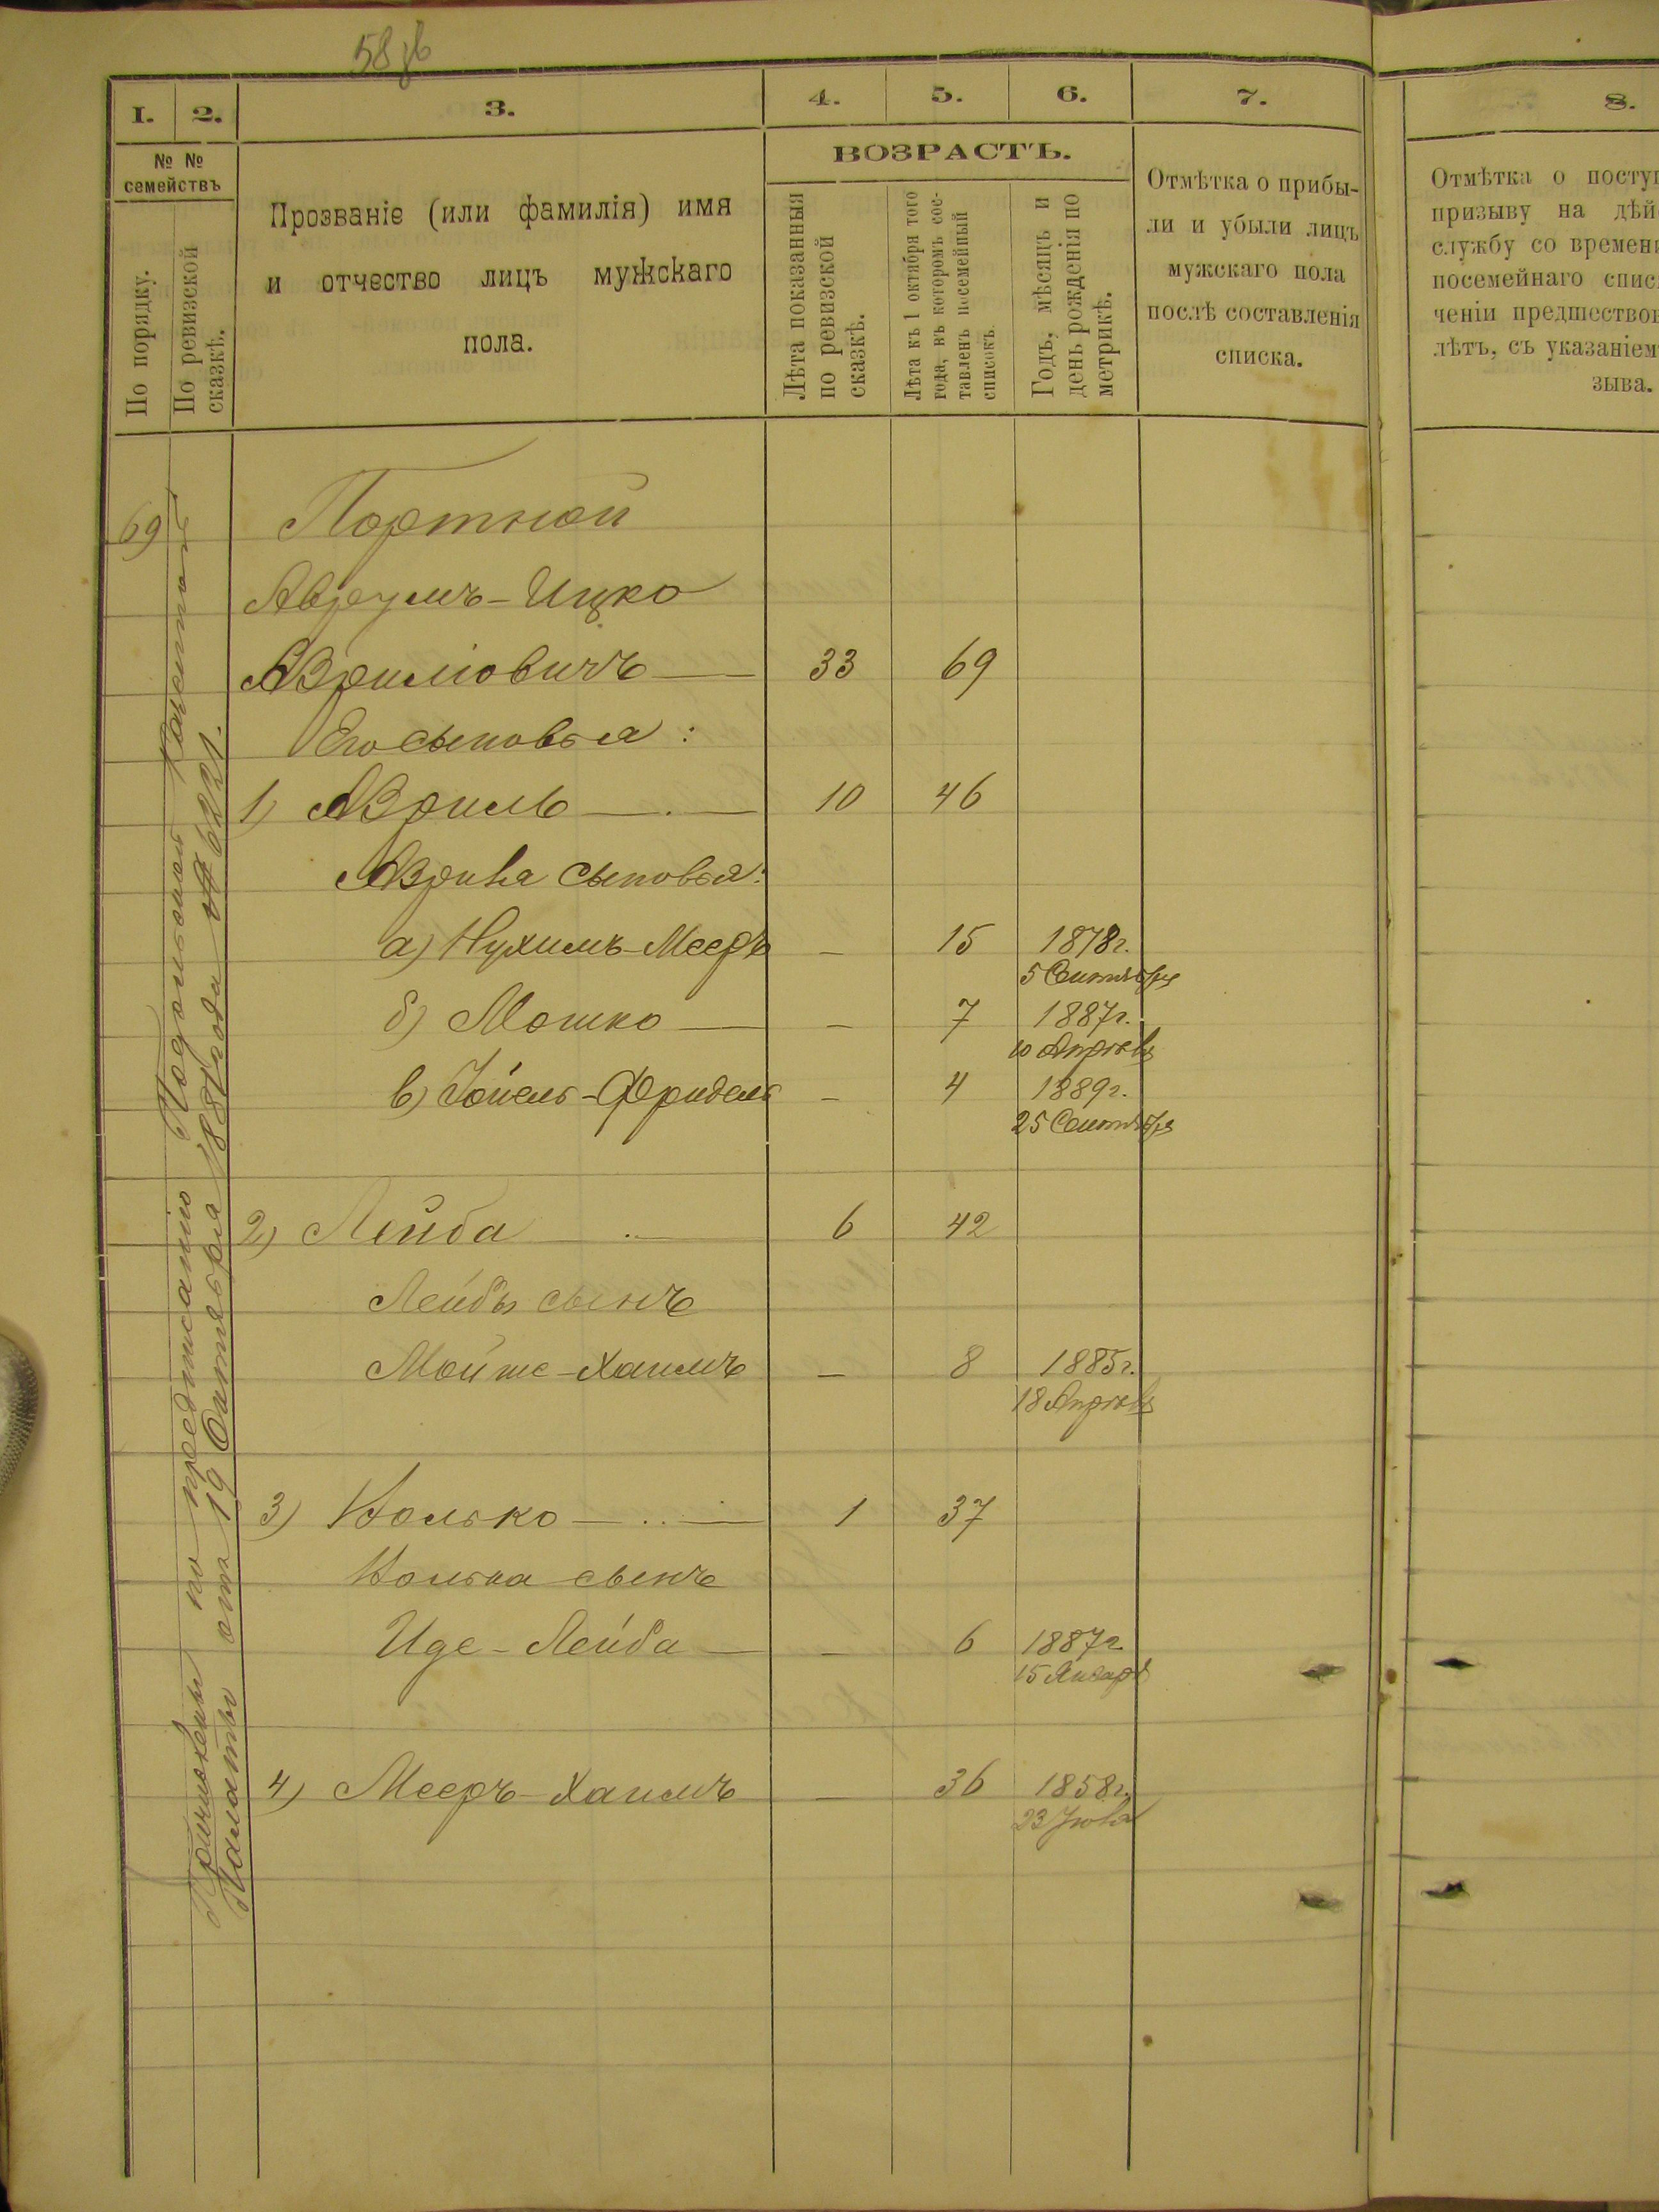 58 зв
1. 2. 3. 4. 5. 6. 7. 8.
№ №
семействъ
По порядку.
По ревизской
сказкѣ.
Прозваніе (или фамилія) имя
и отчество лицъ мужскаго
пола.
ВОЗРАСТЪ.
Лѣта показанныя
по ревизской
сказкѣ.
Лѣта къ 1 октября того
года, въ которомъ сос-
тавленъ посемейный
списокъ.
Годъ, мѣсяцъ и
день рожденія по
метрикѣ.
Отмѣтка о прибы-
ли и убыли лицъ
мужскаго пола
послѣ составленія
списка.
Отмѣтка о посту
призыву на дѣй
службу со времен
посемейнаго спис
ченіи предшество
лѣтъ, съ указаніем
зыва.
Причислены по предписанію Подольской Казенной
Палаты отъ 19 Октября 1881 года № 6221.
69 Портной
Аврумъ-Ицко
Азриліовичъ — 33 69
Его сыновья:
1) Азриль — 10 46
Азриля сыновья:
а) Нухимъ-Мееръ — 15 1878г.
5 Сентября
б) Мошко — — 7 1887г.
10 Апрѣля
в) Іойель-Фридель — 4 1889г.
25 Сентября
2) Лейба — 6 42
Лейбы сынъ
Мойше-Хаимъ — 8 1885г.
18 Апрѣля
3) Іолько — 1 37
сынъ
Иде-Лейба — — 6 1887г
15 Января
4) Мееръ-Хаимъ — 36 1858г.
23 Іюля